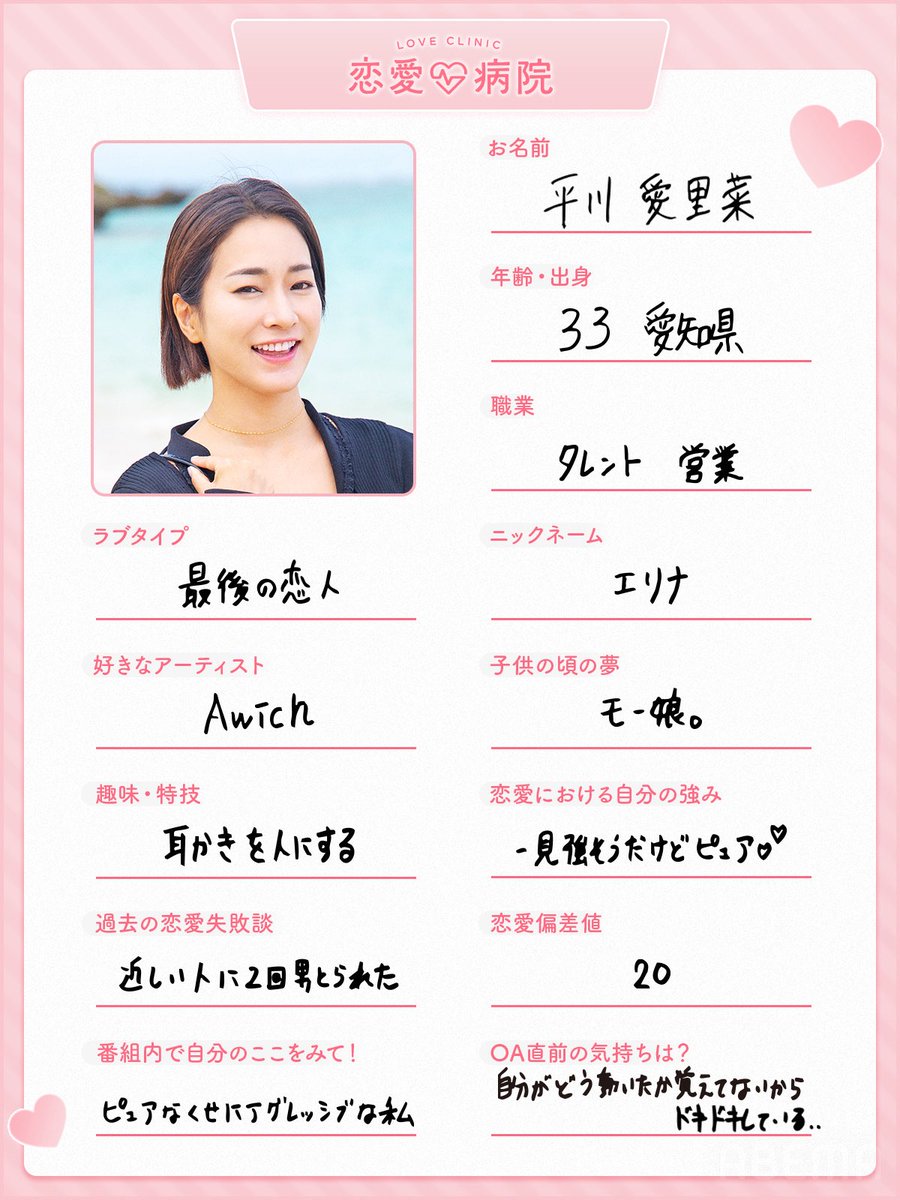 LOVE CLINIC
恋愛病院
お名前
平川 愛里菜
年齢・出身
33 愛知県
職業
タレント 営業
ラブタイプ
最後の恋人
ニックネーム
エリナ
好きなアーティスト
Awich
子供の頃の夢
モー娘。
趣味・特技
耳かきを人にする
恋愛における自分の強み
一見強そうだけどピュア♡♡
過去の恋愛失敗談
近しい人に2回男とられた
恋愛偏差値
20
番組内で自分のここをみて!
ピュアなくせにアグレッシブな私
OA直前の気持ちは?
自分がどう動いたか覚えてないから
ドキドキしている..